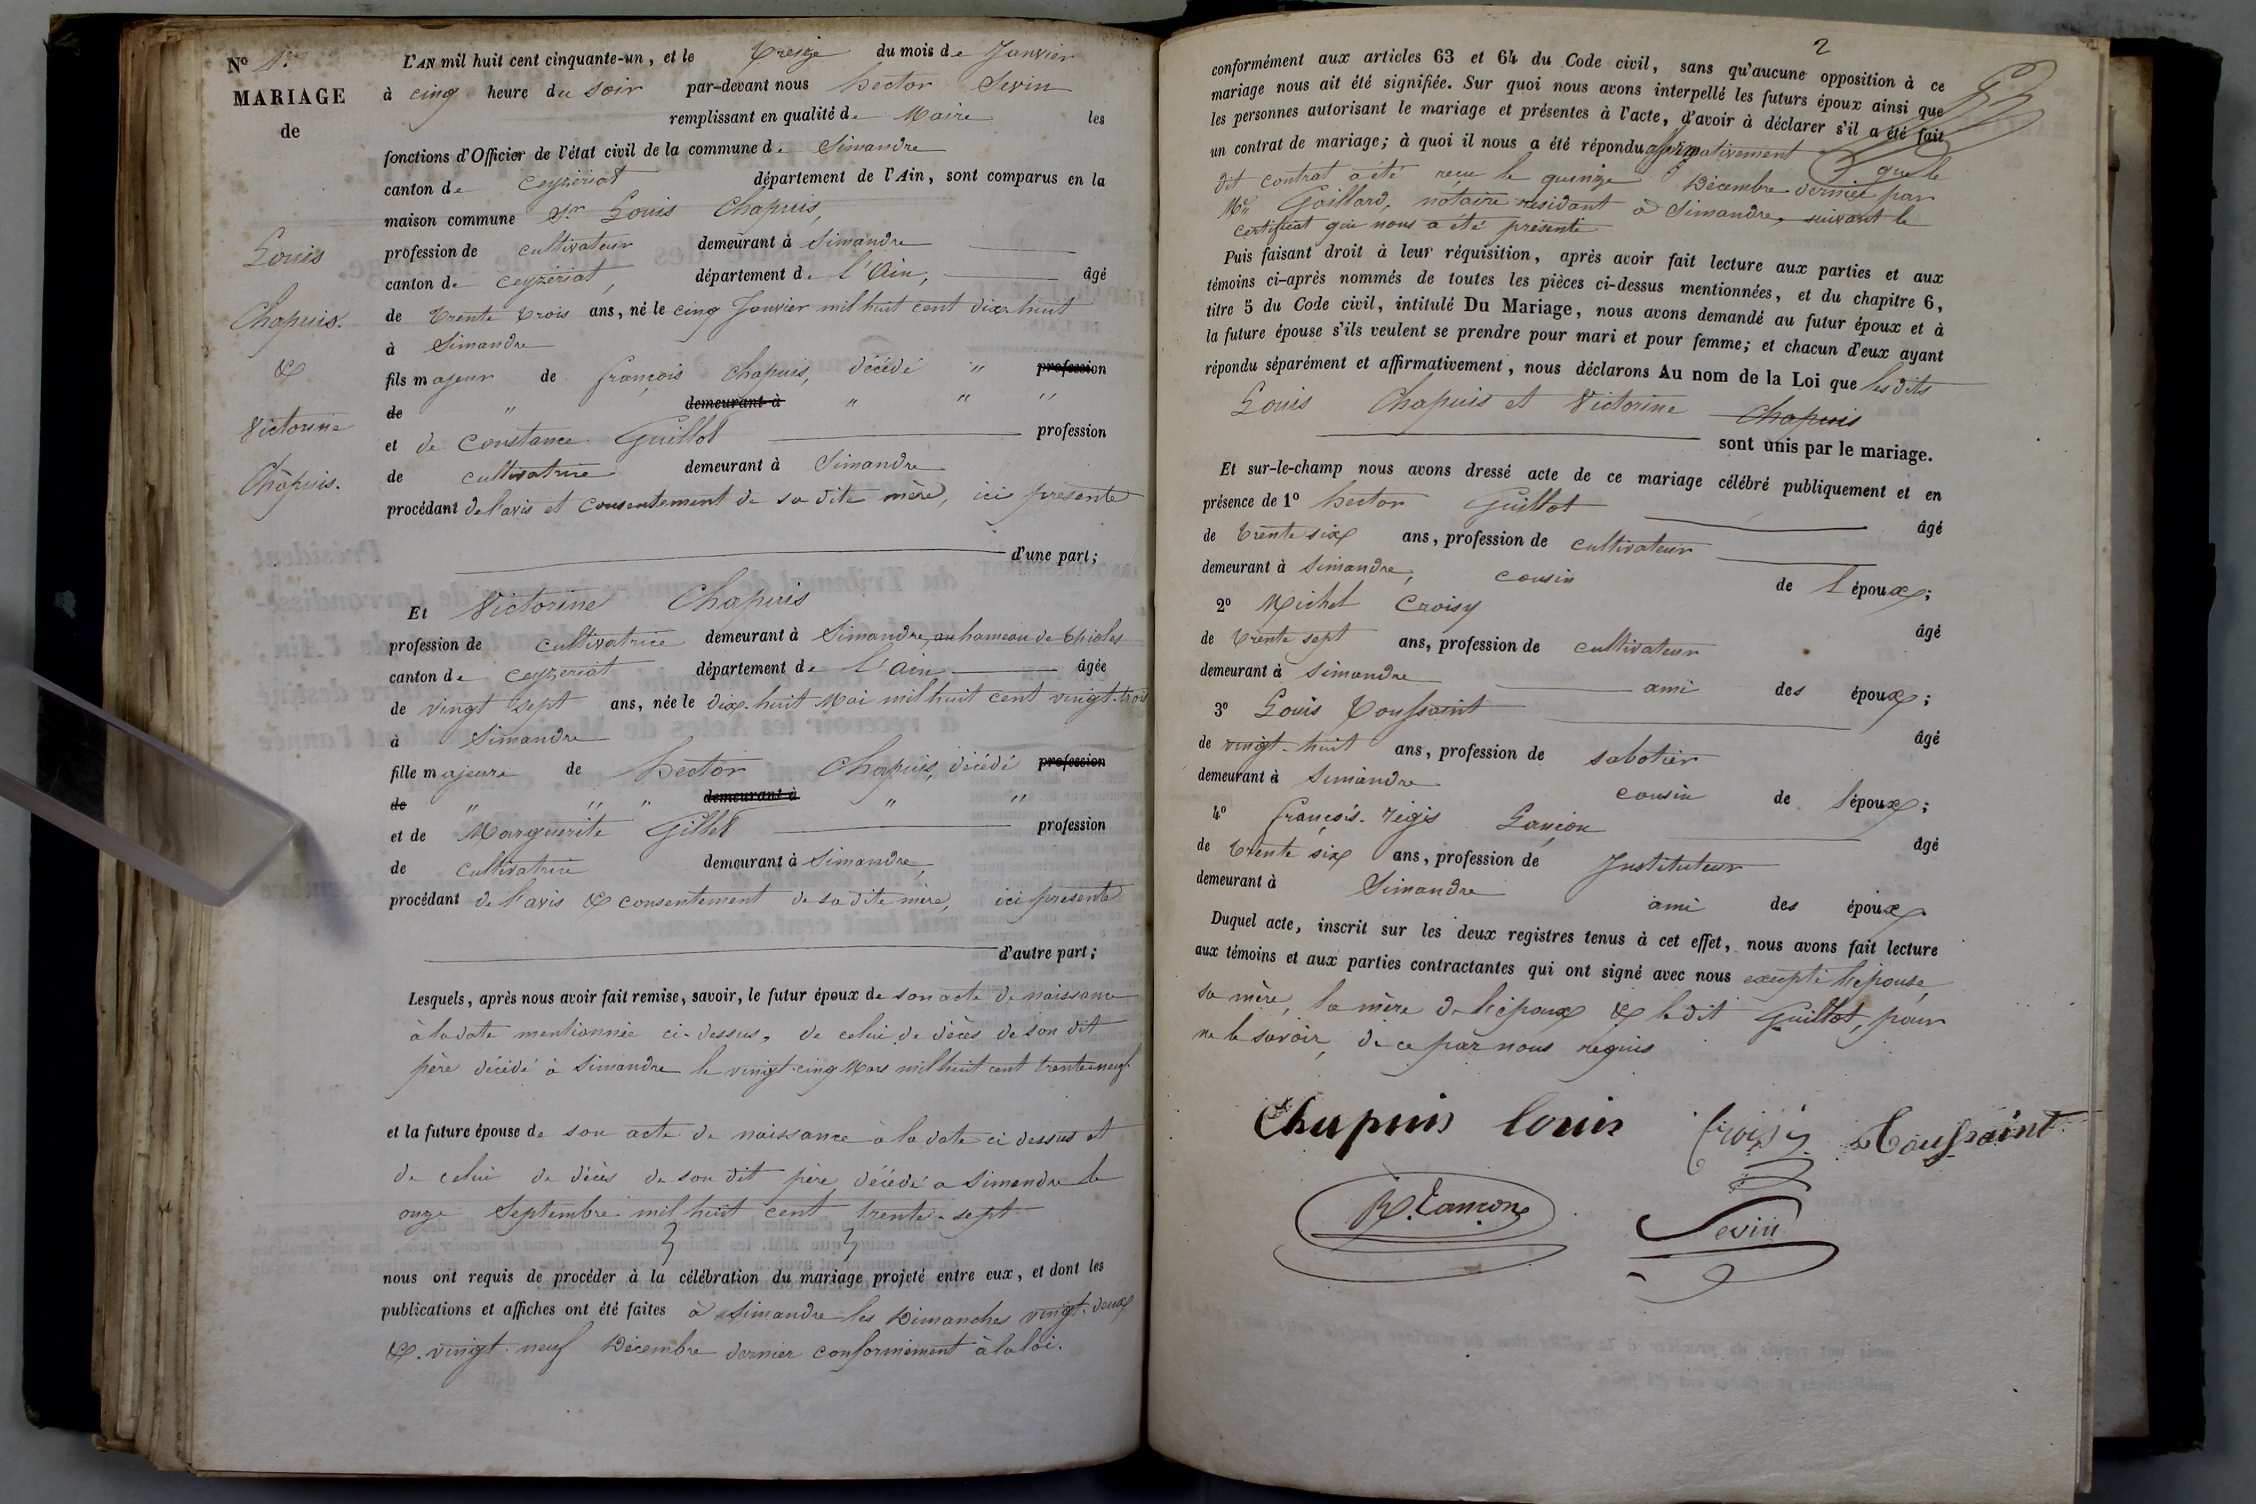 N° 1er
MARIAGE
de
Louis
Chapuis.
&
Victorine
Chapuis.
L'AN mil huit cent cinquante-un, et le treize du mois de Janvier
à cinq heure du soir par-devant nous hector Sevin
remplissant en qualité de Maire les
fonctions d'Officier de l'état civil de la commune de Simandre
canton de Ceyzériat département de l'Ain, sont comparus en la
maison commune Sr Louis Chapuis,
profession de cultivateur demeurant à Simandre
canton de Ceyzériat, département de l'Ain, âgé
de trente trois ans, né le cinq Janvier mil huit cent dix huit
à Simandre
fils majeur de françois Chapuis, décédé " profession
de " demeurant à " " "
et de Constance Guillot profession
de cultivatrice demeurant à Simandre
procédant de l'avis et consentement de sa dite mère, ici présente
d'une part;
Et Victorine Chapuis
profession de cultivatrice demeurant à Simandre, au hameau de thioles
canton de Ceyzériat département de l'Ain âgée
de vingt sept ans, née le dix-huit Mai mil huit cent vingt-trois
à Simandre
fille majeure de hector Chapuis, décédé profession
de " " " demeurant à " "
et de Marguerite Gillet profession
de cultivatrice demeurant à Simandre,
procédant de l'avis & consentement de sa dite mère, ici présente
d'autre part;
Lesquels, après nous avoir fait remise, savoir, le futur époux de son acte de naissance
à la date mentionnée ci-dessus, de celui de décès de son dit
père décédé à Simandre le vingt-cinq Mars mil huit cent trente-neuf
et la future épouse de son acte de naissance à la date ci dessus et
de celui de décès de son dit père, décédé à Simandre le
onze Septembre mil huit cent trente-sept
nous ont requis de procéder à la célébration du mariage projeté entre eux, et dont les
publications et affiches ont été faites à Simandre les Dimanches vingt-deux
& vingt-neuf Décembre dernier conformément à la loi.
2
conformément aux articles 63 et 64 du Code civil, sans qu'aucune opposition à ce
mariage nous ait été signifiée. Sur quoi nous avons interpellé les futurs époux ainsi que
les personnes autorisant le mariage et présentes à l'acte, d'avoir à déclarer s'il a été fait
un contrat de mariage; à quoi il nous a été répondu affirmativement que le
dit contrat a été reçu le quinze Décembre dernier par
Me Gaillard, notaire résidant à Simandre, suivant le
certificat qui nous a été présenté
Puis faisant droit à leur réquisition, après avoir fait lecture aux parties et aux
témoins ci-après nommés de toutes les pièces ci-dessus mentionnées, et du chapitre 6,
titre 5 du Code civil, intitulé Du Mariage, nous avons demandé au futur époux et à
la future épouse s'ils veulent se prendre pour mari et pour femme; et chacun d'eux ayant
répondu séparément et affirmativement, nous déclarons Au nom de la Loi que les dits
Louis Chapuis et Victorine Chapuis
sont unis par le mariage.
Et sur-le-champ nous avons dressé acte de ce mariage célébré publiquement et en
présence de 1° hector Guillot âgé
de trente six ans, profession de cultivateur
demeurant à Simandre, cousin de l'époux;
2° Michel Croisy âgé
de trente sept ans, profession de cultivateur
demeurant à Simandre ami des époux;
3° Louis Toussaint âgé
de vingt-huit ans, profession de sabotier
demeurant à Simandre cousin de l'époux;
4° françois-régis Lançon âgé
de trente six ans, profession de Instituteur
demeurant à Simandre ami des époux.
Duquel acte, inscrit sur les deux registres tenus à cet effet, nous avons fait lecture
aux témoins et aux parties contractantes qui ont signé avec nous excepté l'épouse,
sa mère, la mère de l'époux & le dit Guillot, pour
ne le savoir, de ce par nous requis
Chapuis louis Croisy Toussaint
R. Lançon Sevin